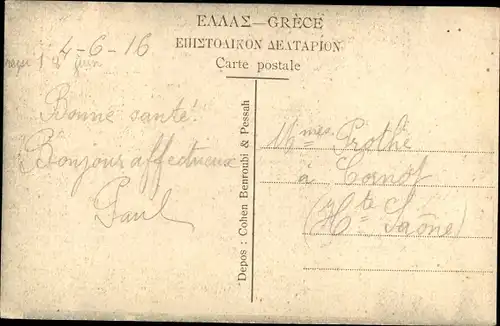 ΕΛΛΑΣ—GRÈCE
ΕΠΙΣΤΟΛΙΚΟΝ ΔΕΛΤΑΡΙΟΝ
Carte postale
4-6-16
18 juin
Bonne santé.
Bonjour affectueux
Paul
Depos : Cohen Benroubi & Pessah
Mmes Prothe
à Cornot
(Hte Saône)